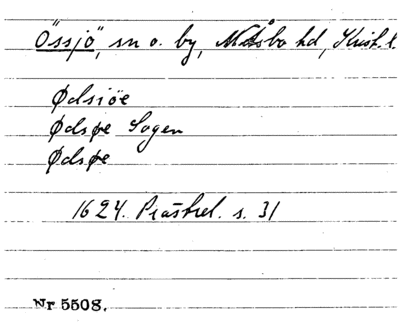 Össjö, sn o. by, N. Åsbo hd, Krist. l.
Ødsiöe
Ødsøe Sogen
Ødsøe
1624. Präsbrel. s. 31
Nr 5508.